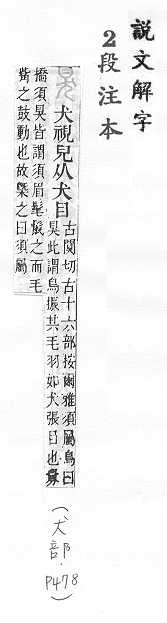 說文解字
2段注本
狊 犬視皃从犬目
古闃切古十六部按爾雅須屬鳥曰
狊此謂鳥振其毛羽如犬張目也
橋須狊皆謂須眉髦髮之而毛
觜之鼓動也故槩之曰須屬
（犬部．P478）